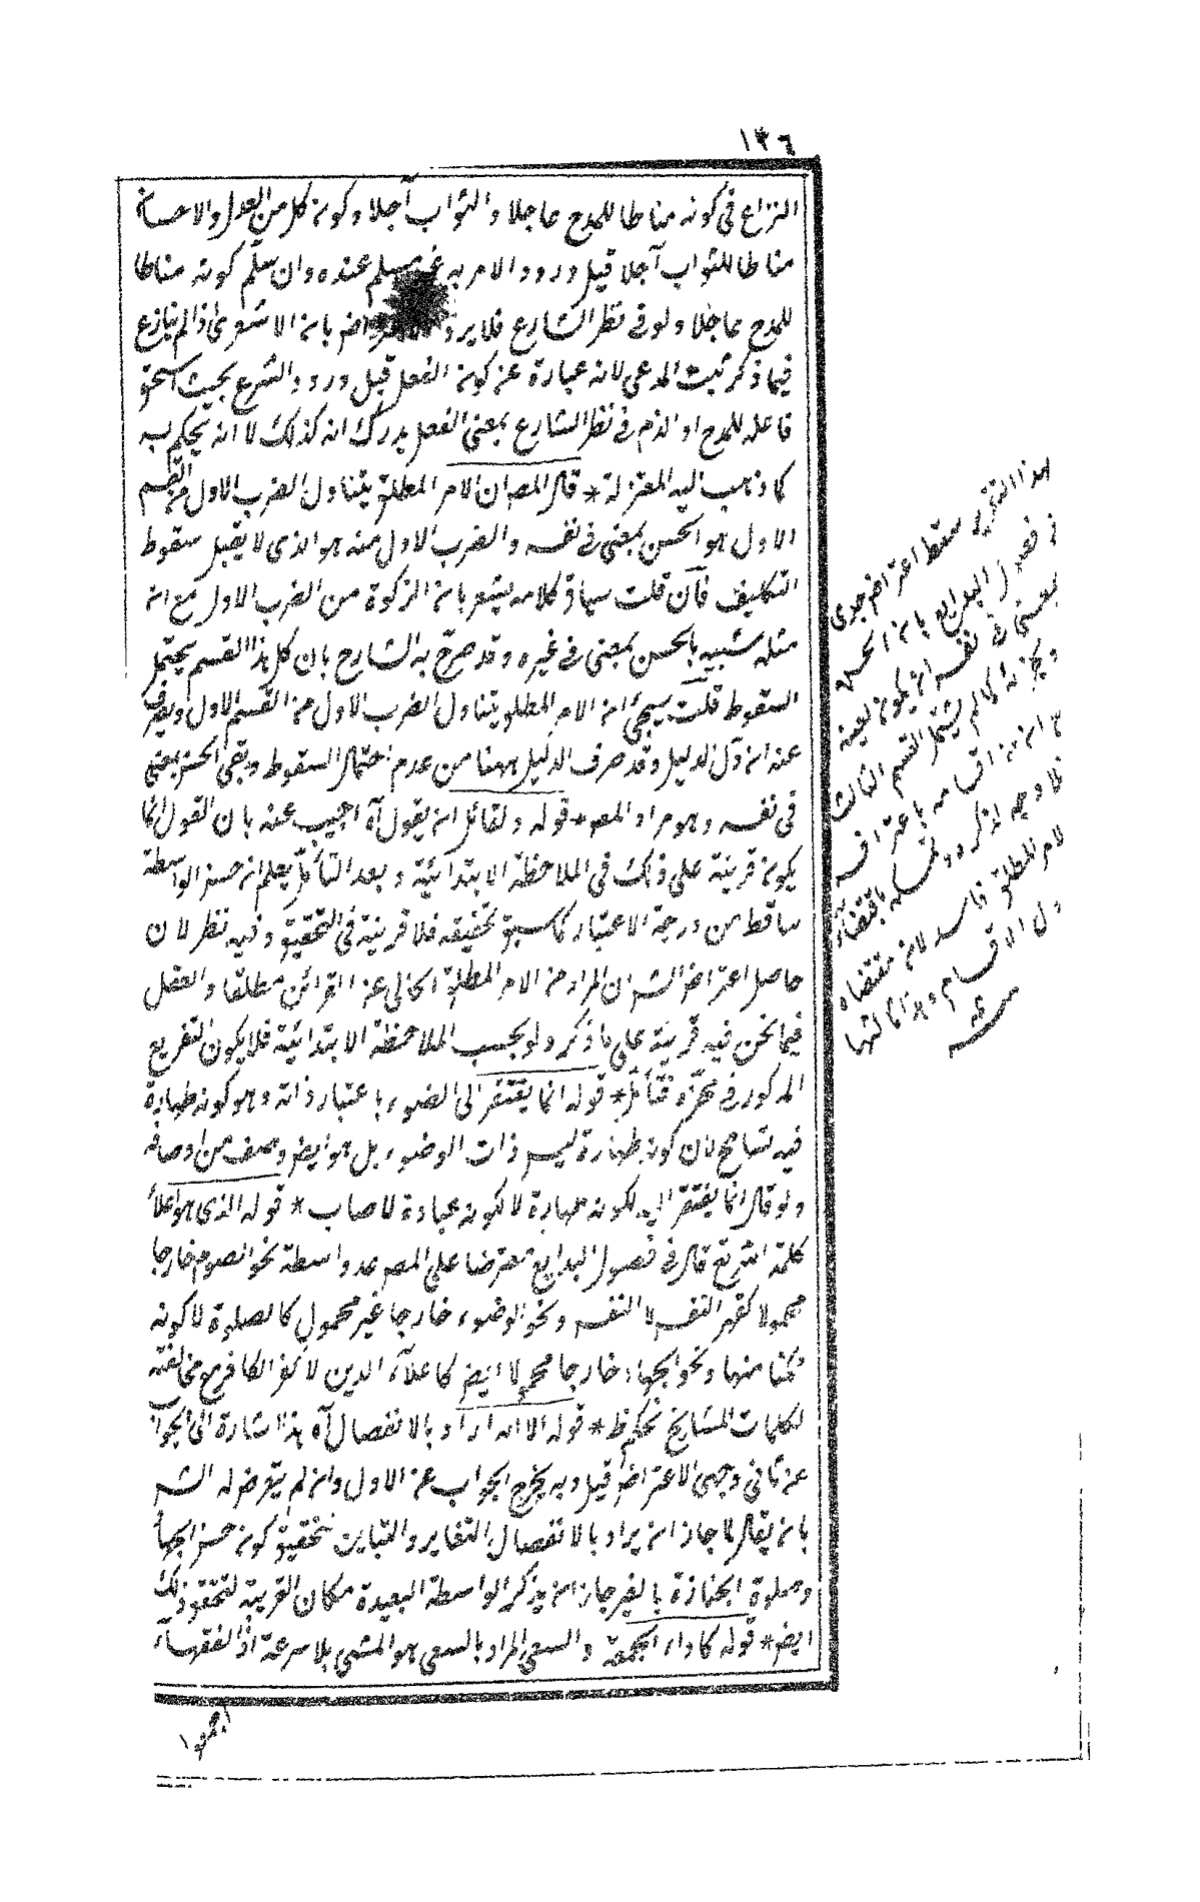 ١٣٦
النزاع فى كونه مناطا للمدح عاجلا والثواب آجلا وكون كل من العدل والاحسان
مناطا للثواب آجلا قبل ورود الامر به غير مسلم عنده وان سلم كونه مناطا
للمدح عاجلا ولو فى نظر الشارع فلا يرد الاعتراض بان الاشعرى اذا لم ينازع
فيما ذكر ثبت المدعى لانه عبارة عن كون الفعل قبل ورود الشرع بحيث يستحق
فاعله للمدح او الذم فى نظر الشارع بمعنى العقل يدرك انه كذلك لا انه يحكم به
كما ذهب اليه المعتزلة * قال المص ان الامر المطلق يتناول الضرب الاول من القسم
الاول هو الحسن بمعنى فى نفسه والضرب الاول منه هو الذى لا يقبل سقوط
التكليف فان قلت سياق كلامه يشعر بان الزكوة من الضرب الاول مع انه
مثله شبيه بالحسن بمعنى فى غيره وقد صرح به الشارح بان كل هذا القسم يحتمل
السقوط قلت سيجئ ان الامر المطلق يتناول الضرب الاول من القسم الاول ويصرف
عنه ان دل الدليل وقد صرف الدليل ههنا من عدم احتمال السقوط وبقى الحسن بمعنى
فى نفسه وهو مراد المص * قوله ولقائل ان يقول آه اجيب عنه بان القول انما
يكون قرينة على ذلك فى الملاحظة الابتدائية وبعد التأمل يعلم ان حسن الواسطة
ساقط من درجة الاعتبار كما سبق تحقيقه فلا قرينة فى التحقيق وفيه نظر لان
حاصل اعتراض الش ان المراد من الامر المطلق الخالى عن القرائن مطلقا والعقل
فيما نحن فيه قرينة على ما ذكر ولو بحسب الملاحظة الابتدائية فلا يكون التفريع
المذكور فى محزه فتأمل * قوله انما يفتقر الى الوضوء باعتبار ذاته وهو كونه طهارة
فيه تسامح لان كونه طهارة ليس ذات الوضوء بل هو ايض وصف من اوصافه
ولو قال انما يفتقر اليه لكونه طهارة لا لكونه عبادة لاصاب * قوله الذى هو اعلاء
كلمة الله تع قال فى فصول البدايع معترضا على المص عد واسطة نحو الصوم خارجا
محمولا كقهر النفس لا النفس ونحو الوضوء خارجا غير محمول كالصلوة لا كونه
ممكنا منها ونحو الجهاد خارجا محمولا ايض كاعلاء الدين لا كفر الكافر مع مخالفته
لكلمات المشايخ تحكم * قوله الا انه اراد بالانفصال آه هذا اشارة الى الجواب
عن ثانى وجهى الاعتراض قيل وبه يخرج الجواب عن الاول وان لم يتعرض له الش
بان يقال لما جاز ان يراد بالانفصال التغاير والتباين ليتحقق كون حسن الجهاد
وصلوة الجنازة بالغير جاز ان يذكر الواسطة البعيدة مكان القريبة لتحقق ذلك
ايض * قوله كاداء الجمعة والسعى المراد بالسعى هو المشى بلا سرعة اذ الفقهاء
بهذا التقرير سقط اعتراض جدى
فى فصول البدايع بان الحسن
بمعنى فى نفسه لا يكون لعينه
وجزئه كما لم يشتمل القسم الثالث
مع انه من اقسامه باعترافه
فلا وجه لذكره وتمسكه باقتضاء
الامر المطلق فاسد لان مقتضاه
اول الاقسام وهذا ثالثها
منه